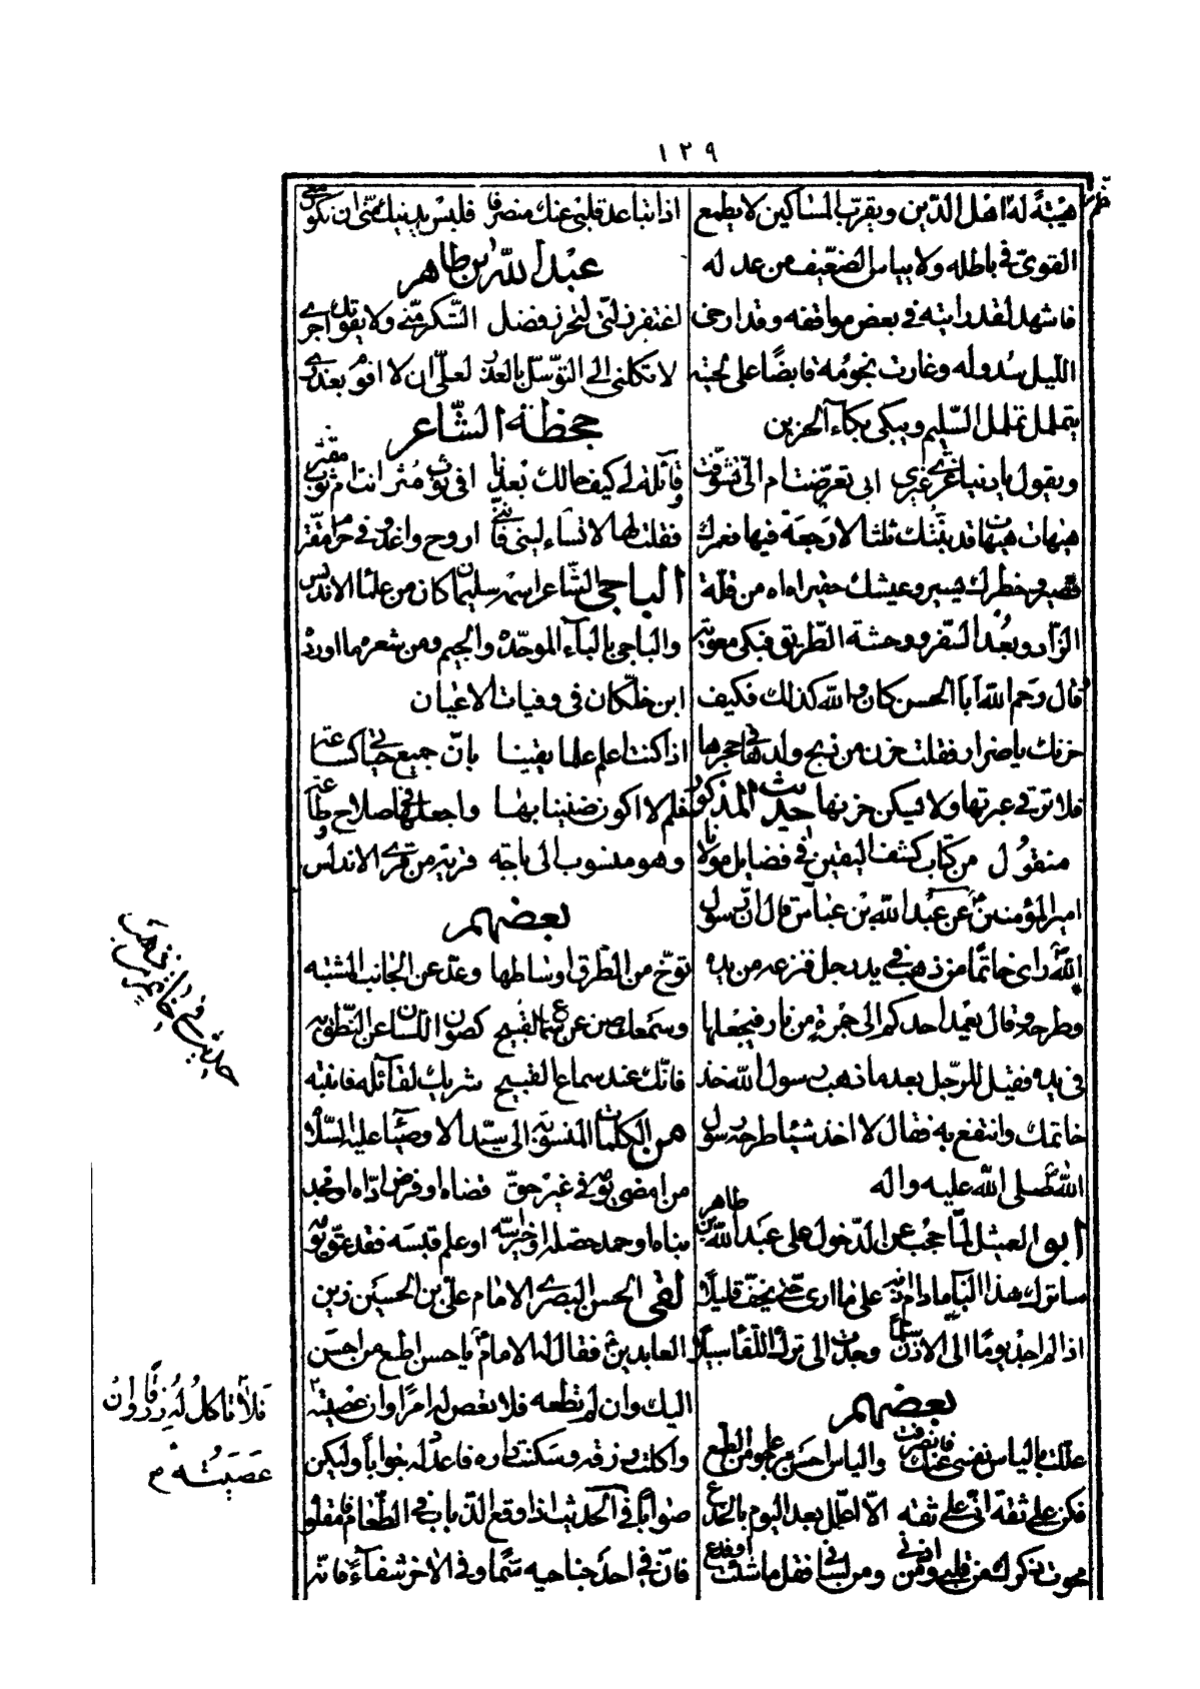 ١٢٩
هيبةً له اهل الدّين ويقرّب المساكين لا يطمع
القوىّ في باطله ولا ييأس الضعّيف من عدله
فاشهد لقد رايته في بعض مواقفه وقد ارخى
الليل سدوله وغارت نجومه قابضًا على لحيته
يتململ تململ السّليم ويبكى بكاء الحزين
ويقول يا دنيا غرّي غيري ابي تعرّضت ام الىّ تشوّفت
هيهات هيهات قد بتتك ثلثا لا رجعة فيها فعمرك
قصير وخطرك يسير وعيشك حقير اه اه من قلّة
الزّاد وبعُد السّفر ووحشة الطّريق فبكى معوية
قال رحم الله ابا الحسن كان والله كذلك فكيف
حزنك يا ضرار فقلت حزن من ذبح ولدها في حجرها
فلا ترقى عبرتها ولا يسكن حزنها حديث المذكور
منقول من كتاب كشف اليقين في فضايل مولانا
امير المؤمنين عن عبد الله بن عباس قال انّ رسول
الله راى خاتمًا من ذهب في يد رجل فنزعه من يده
وطرحه وقال يعمد احدكم الى جمرةٍ من نار فيجعلها
في يده فقيل للرّجل بعد ما ذهب رسول الله خذ
خاتمك وانتفع به فقال لا اخذ شيئا طرحه رسول
الله صلى الله عليه واله
ابو العميثل لمّا حجب عن الدّخول على عبد الله بن طاهر
ساترك هذا الباب ما دام اذنه على ما ارى حتّى يخفّ قليلًا
اذا لم اجد يومًا الى الاذن سلّمًا وجدت الى ترك اللّقاء سبيلًا
بعضهم
علّلت بالياس نفسي عنك فانصرفت والياس احسن مرجوعًا من الطّمع
فكن على ثقة انّي على ثقة الّا اعلّل بعد اليوم بالخدع
محوت ذكرك من قلبي ومن اذني ومن لساني فقل ما شئت او فدع
اذا تباعد قلبي عنك منصرفًا فليس يدنيك منّي ان تكون معي
عبد الله بن طاهر
اغتفر زلّتى لتحرز فضل الشّكر منّي ولا يفوتك اجري
لا تكلني الى التوسّل بالعذر لعلّي ان لا اقوم بعذري
جحظة الشّاعر
وقائلة لي كيف حالك بعدنا افي ثوب مثر انت ام ثوب مقتر
فقلت لها لا تسأليني فانّني اروح واغدو في حرام مقتّر
الباجي الشّاعر اسمه سليمان كان من علماء الاندلس
والباجي بالباء الموحّدة والجيم ومن شعره ما اورده
ابن خلّكان في وفيات الاعيان
اذا كنت اعلم علما يقينا بانّ جميع حياتي كساعة
فلم لا اكون ضنينا بها واجعلها في صلاح وطاعة
وهو منسوب الى باجة قرية من قرى الاندلس
بعضهم
توخّ من الطّرق اوساطها وعدّ عن الجانب المشتبه
وسمعك صن عن سماع القبيح كصون اللّسان عن النّطق به
فانّك عند سماع القبيح شريك لقائله فانتبه
من الكلمات المنسوبة الى سيّد الاوصياء عليه السّلام
من امضى يومه في غير حقّ قضاه او فرض ادّاه او مجد
بناه او حمد حصله او خير اسّسه او علم قبسه فقد عقّ يومه
لقى الحسن البصري الامام علىّ بن الحسين زين
العابدين فقال له الامام يا حسن اطع من احسن
اليك وان لم تطعه فلا تعص له امرًا وان عصيته
واكلت رزقه وسكنت داره فاعدّ له جوابًا وليكن
صوابًا في الحديث اذا وقع الذّباب في الطّعام فامقلوه
فانّ في احد جناحيه سمًّا وفي الاخر شفاء فانّه
حديث في ذمّ خاتم من ذهب
فلا تاكل له رزقًا وان
عصيته م